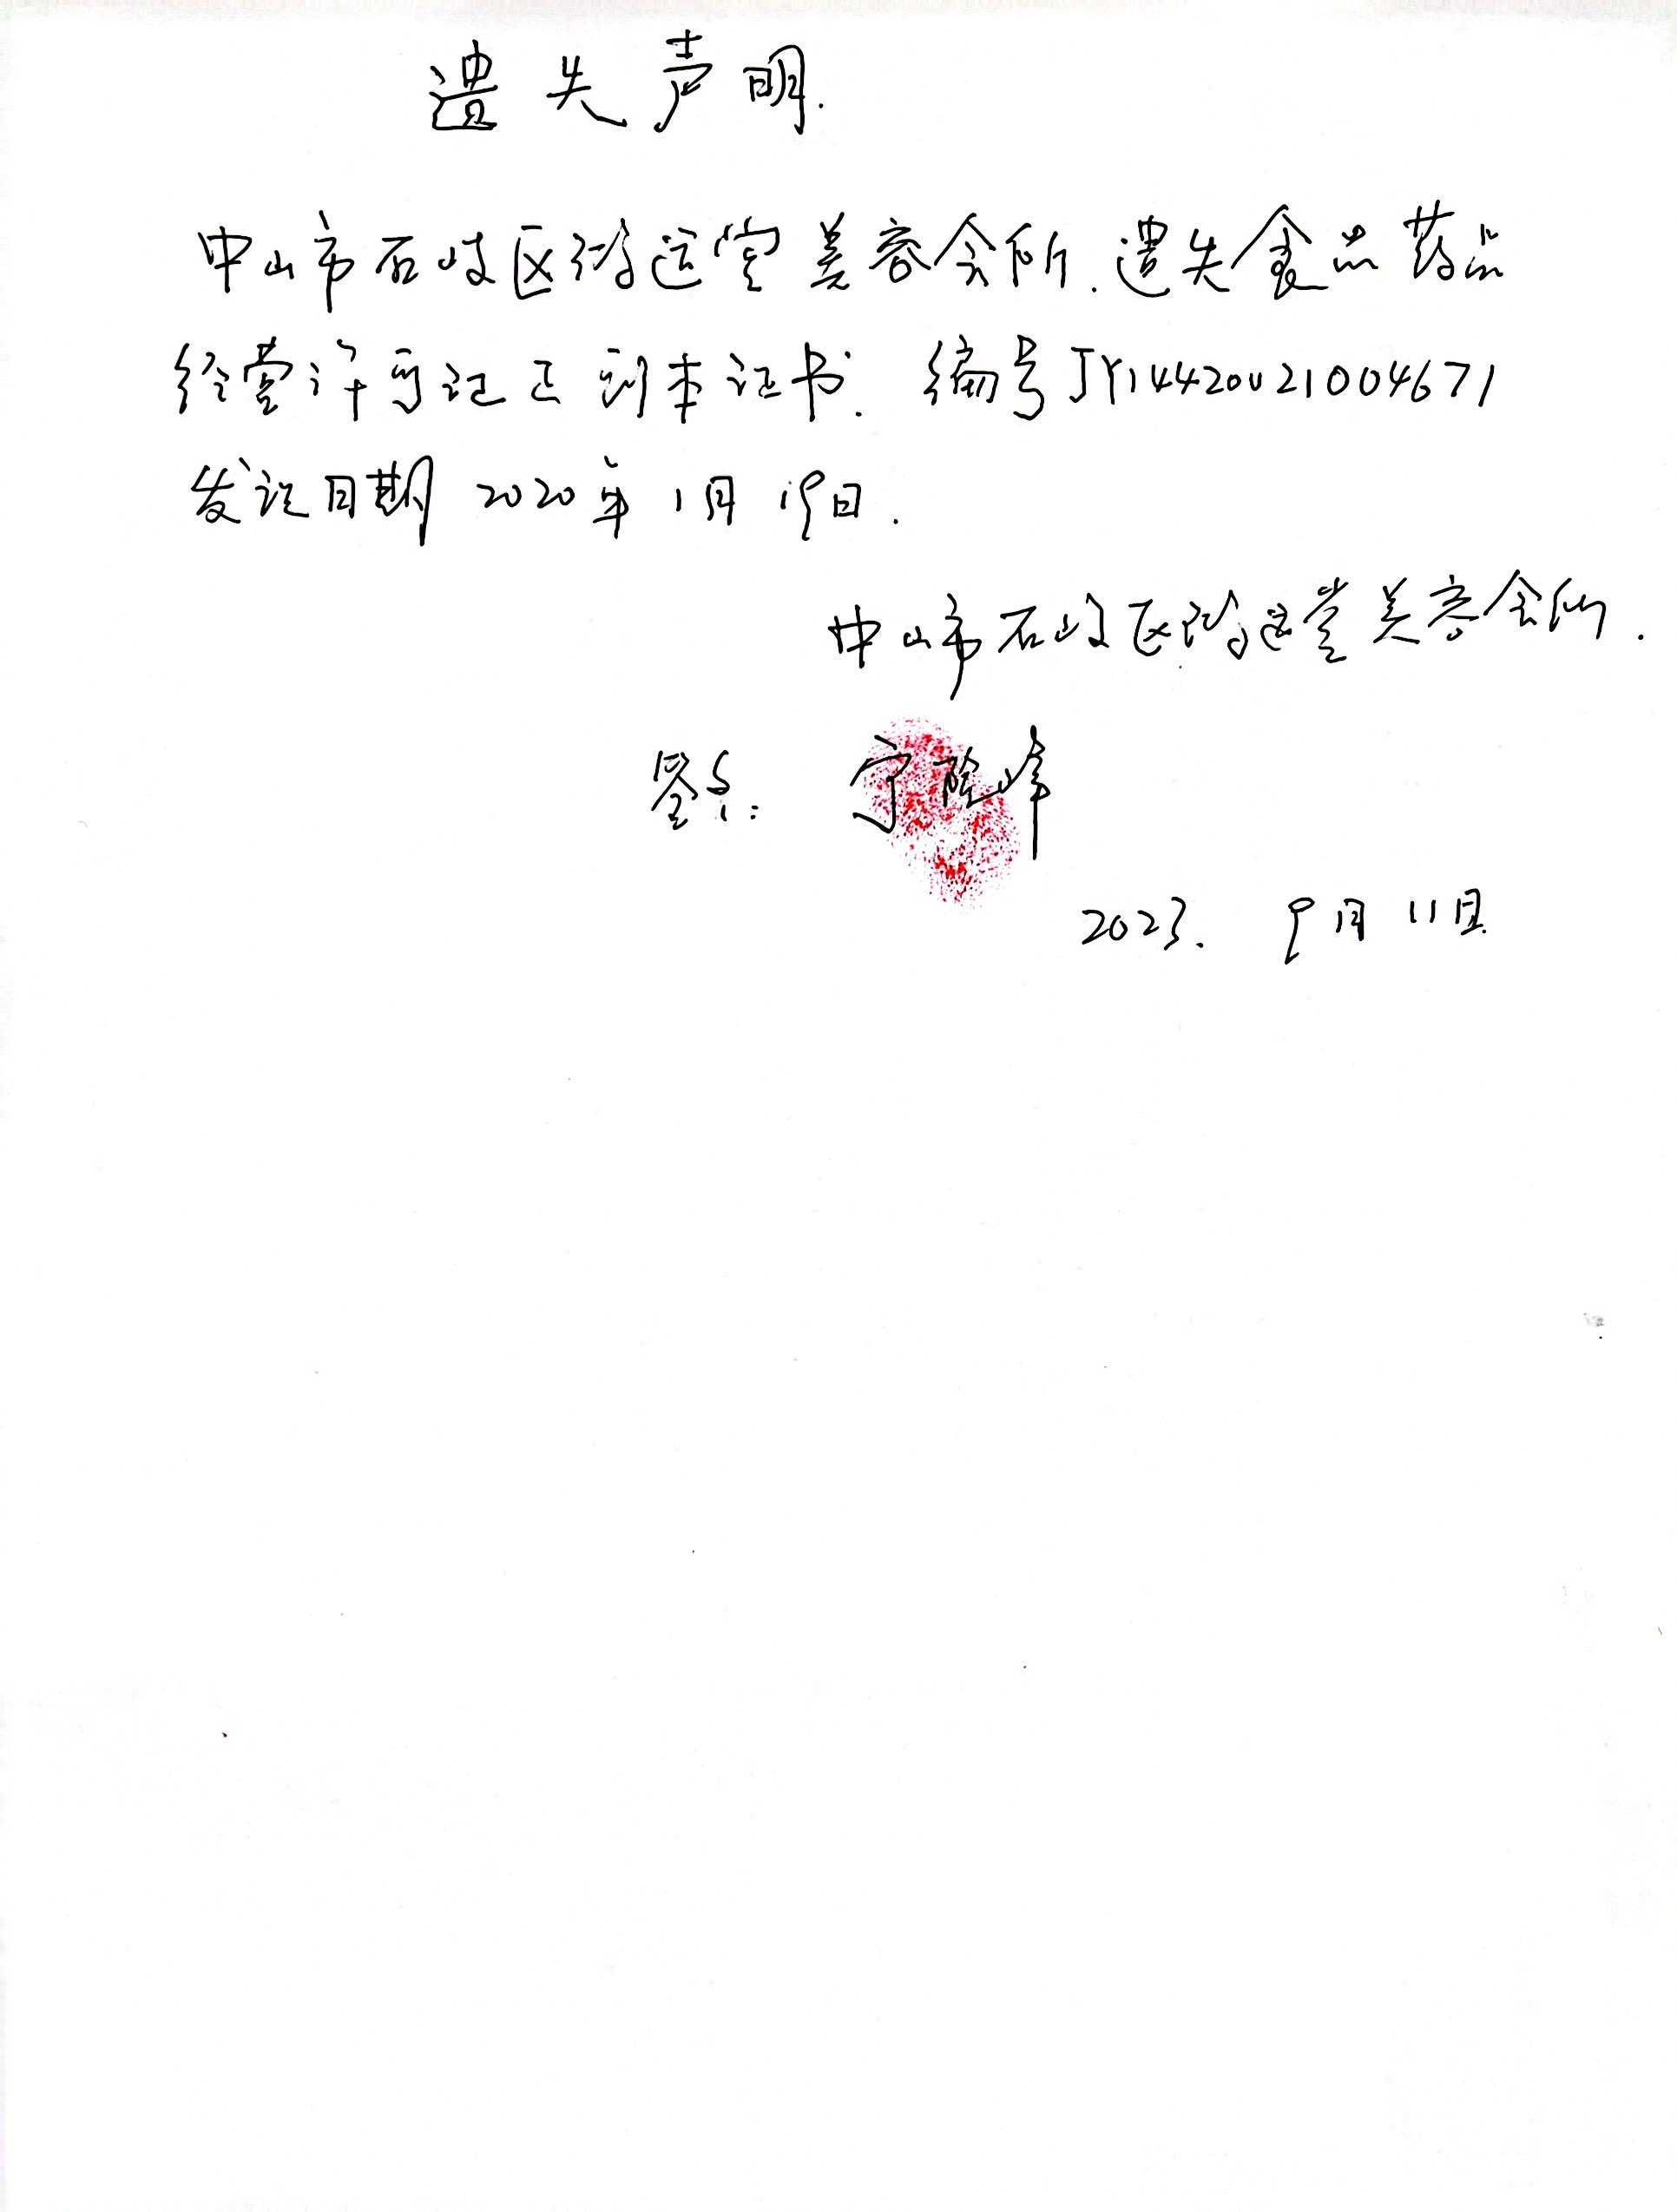 遗失声明.
中山市石岐区 运堂美容会所.遗失食品药品
经营许可证正副本证书. 编号JY14420021004671
发证日期 2020年1月19日.
中山市石岐区 运堂美容会所.
签名: 宁 峰
2023. 9月11日